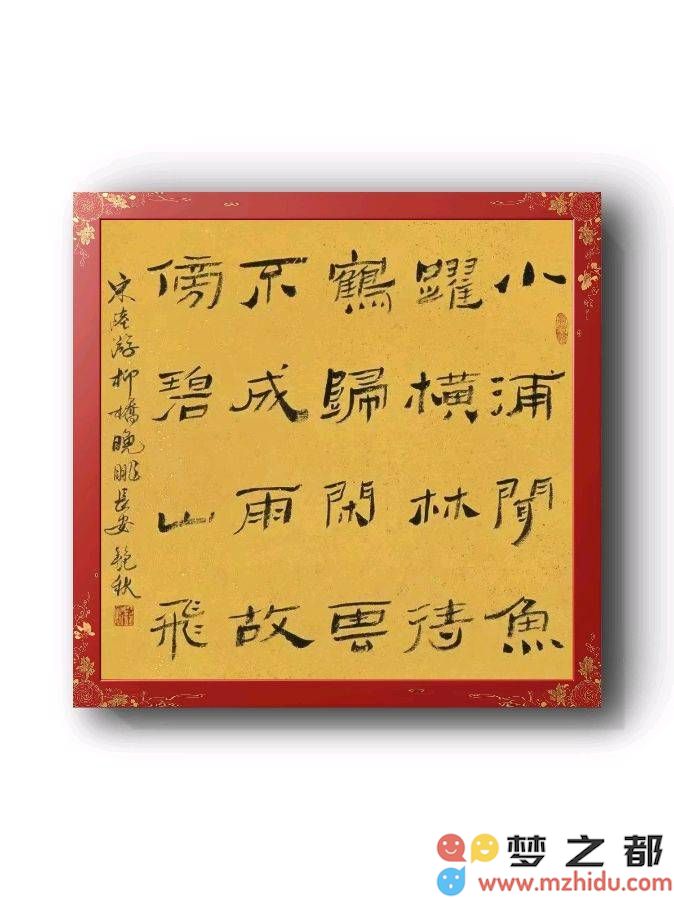 小浦聞魚
躍橫林待
鶴歸閑雲
不成雨故
傍碧山飛
宋陸游柳橋晚眺長安艷秋
梦之都
www.mzhidu.com